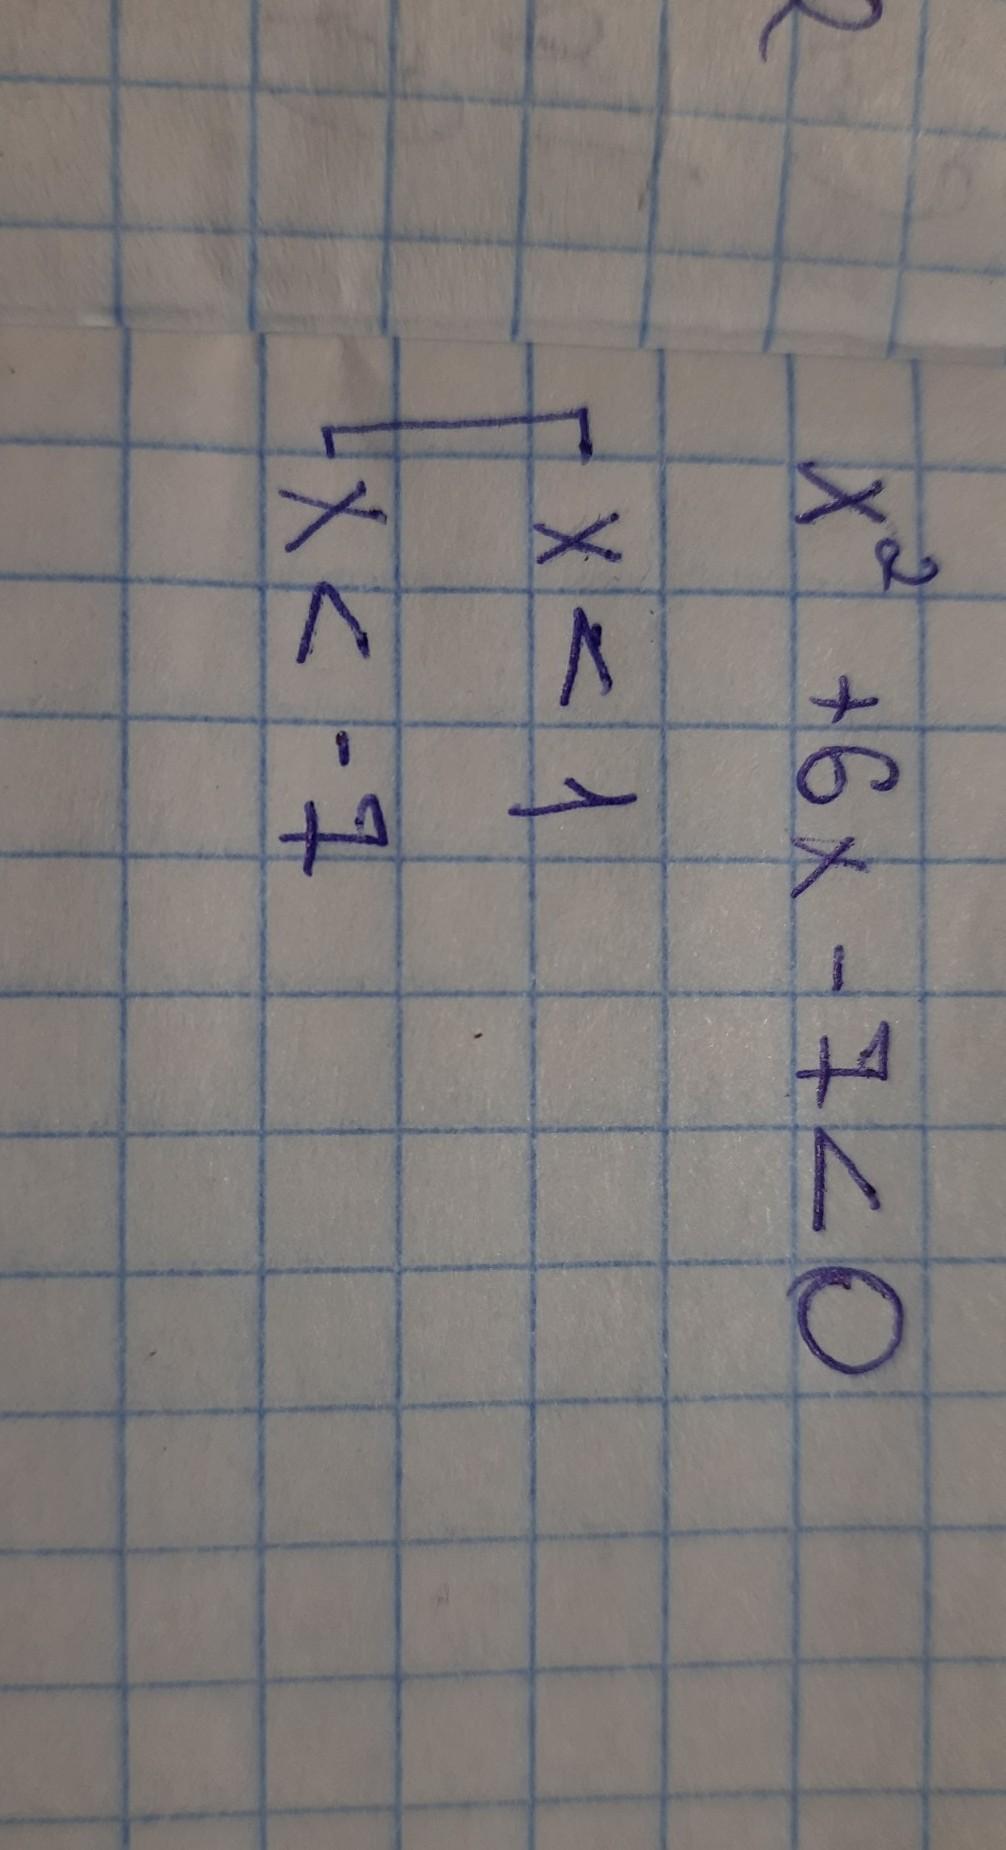 x² + 6x - 7 < 0
x < 1
x < -7